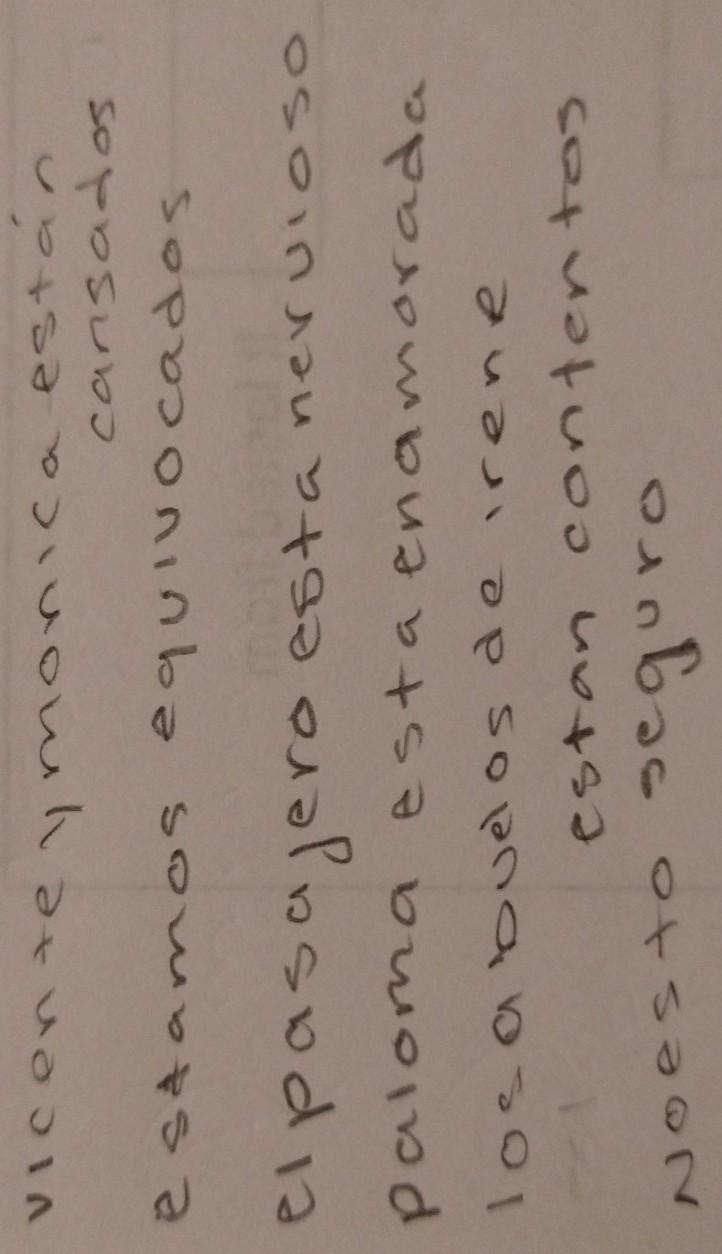 vicente y monica están
cansados
estamos equivocados
el pasajero esta nervioso
paloma esta enamorada
los abuelos de irene
estan contentos
No esto seguro